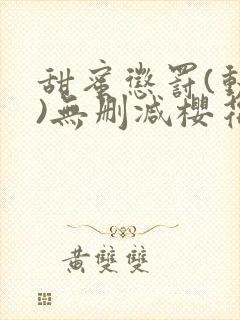 甜蜜懲罰(動
)無刪減櫻花
黃雙雙